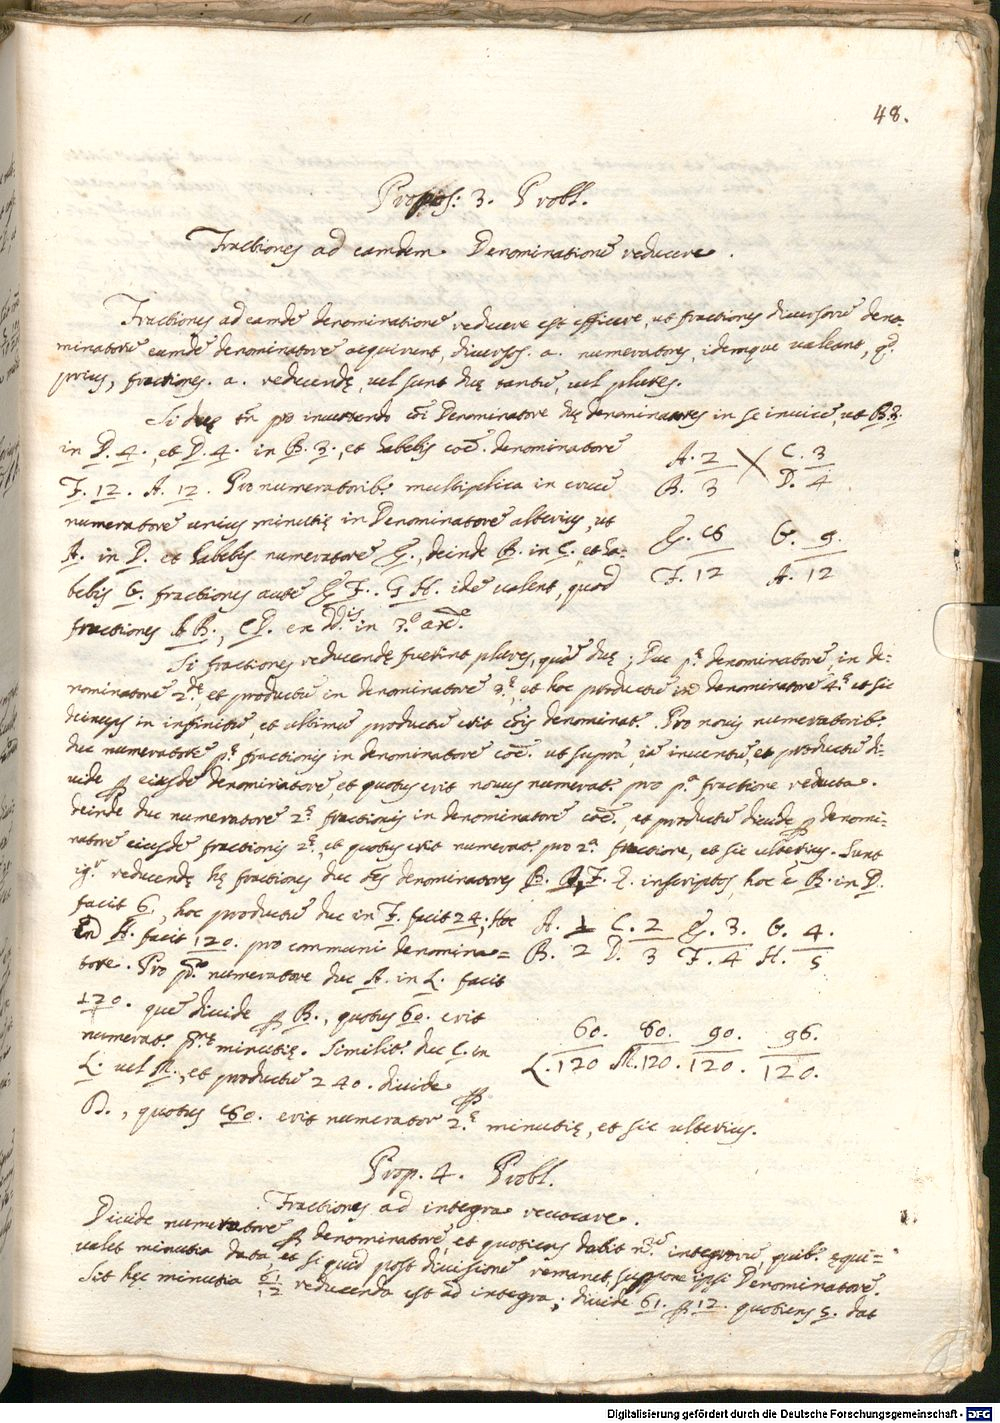 48.
Propos: 3. Probl.
Fractiones ad eamdem Denominationē reducere.
Fractiones ad eamdē denominationē reducere est efficere, ut fractiones diversorū deno-
minatorū eumdē denominatorē acquirant, diversos. a. numeratores, idemque valeant, qd.
prius, fractiones. a. reducendę, vel sunt duę tantū, vel plures.
Si duę tn̄ pro inveniendo cōi Denominatore duc denominatores in se invicē, ut B. 3.
in D. 4., et D. 4. in B. 3., et habebis coē. denominatorē
A. 2 C. 3
B. 3 D. 4
F. 12. H. 12. Pro numeratoribꝰ multiplica in crucē
numeratorē unius minutię in Denominatorē alterius, ut
A. in D. et habebis numeratorē E., deinde B. in C., et ha-
E. 8 G. 9.
F. 12 H. 12
bebis G. fractiones autē E F. G H. idē valent, quod
fractiones A B., C D. ex in 3.º
Si fractiones reducendę fuerint plures, quā duę; Duc pę. denominatorē, in de-
nominatorē 2ę, et productū in denominatorē 3ę, et hoc productū in denominatorē 4ę et sic
deinceps in infinitū, et ultimū productū erit cōis denominat. Pro novis numeratoribꝰ
duc numeratorē pę. fractionis in denominatorē coē. ut supra, iā inventū, et productū di-
vide ꝑ eiusdē denominatorē, et quotus erit novus numerat. pro pª. fractione reducta.
deinde duc numeratorē 2ę. fractionis in denominatorē coē., et productū divide ꝑ denomi-
natorē eiusdē fractionis 2ę., et quotus erit numerat. pro 2ª. fractione, et sic ulterius. Sint
igʳ reducendę hę fractiones duc oēs denominatores B. D. F. H. inscriptos, hoc ē B. in D.
facit 6, hoc productū duc in F. facit 24; hoc
A. 1 C. 2 E. 3. G. 4.
B. 2 D. 3 F. 4 H. 5
in H. facit 120. pro communi denomina=
tore. Pro pº. numeratore duc A. in L. facit
120. quē divide ꝑ B., quotus 60. erit
60. 80. 90. 96.
L. 120 M. 120. 120. 120.
numerat. minutię. Similitʳ duc C. in
L. vel M., et productū 240. divide ꝑ
D., quotus 80. erit numerator 2ę minutię, et sic ulterius.
Prop. 4. Probl.
Fractiones ad integra revocare.
Divide numeratorē ꝑ denominatorē, et quotiens dabit integrorū, quibꝰ ęqui=
valet minutia data, et si quid post divisionē remanet, suppone ipsi Denominatorē.
Sit hęc minutia 61/12 reducenda est ad integra; divide 61. ꝑ 12. quotiens 5. dat
Digitalisierung gefördert durch die Deutsche Forschungsgemeinschaft - DFG